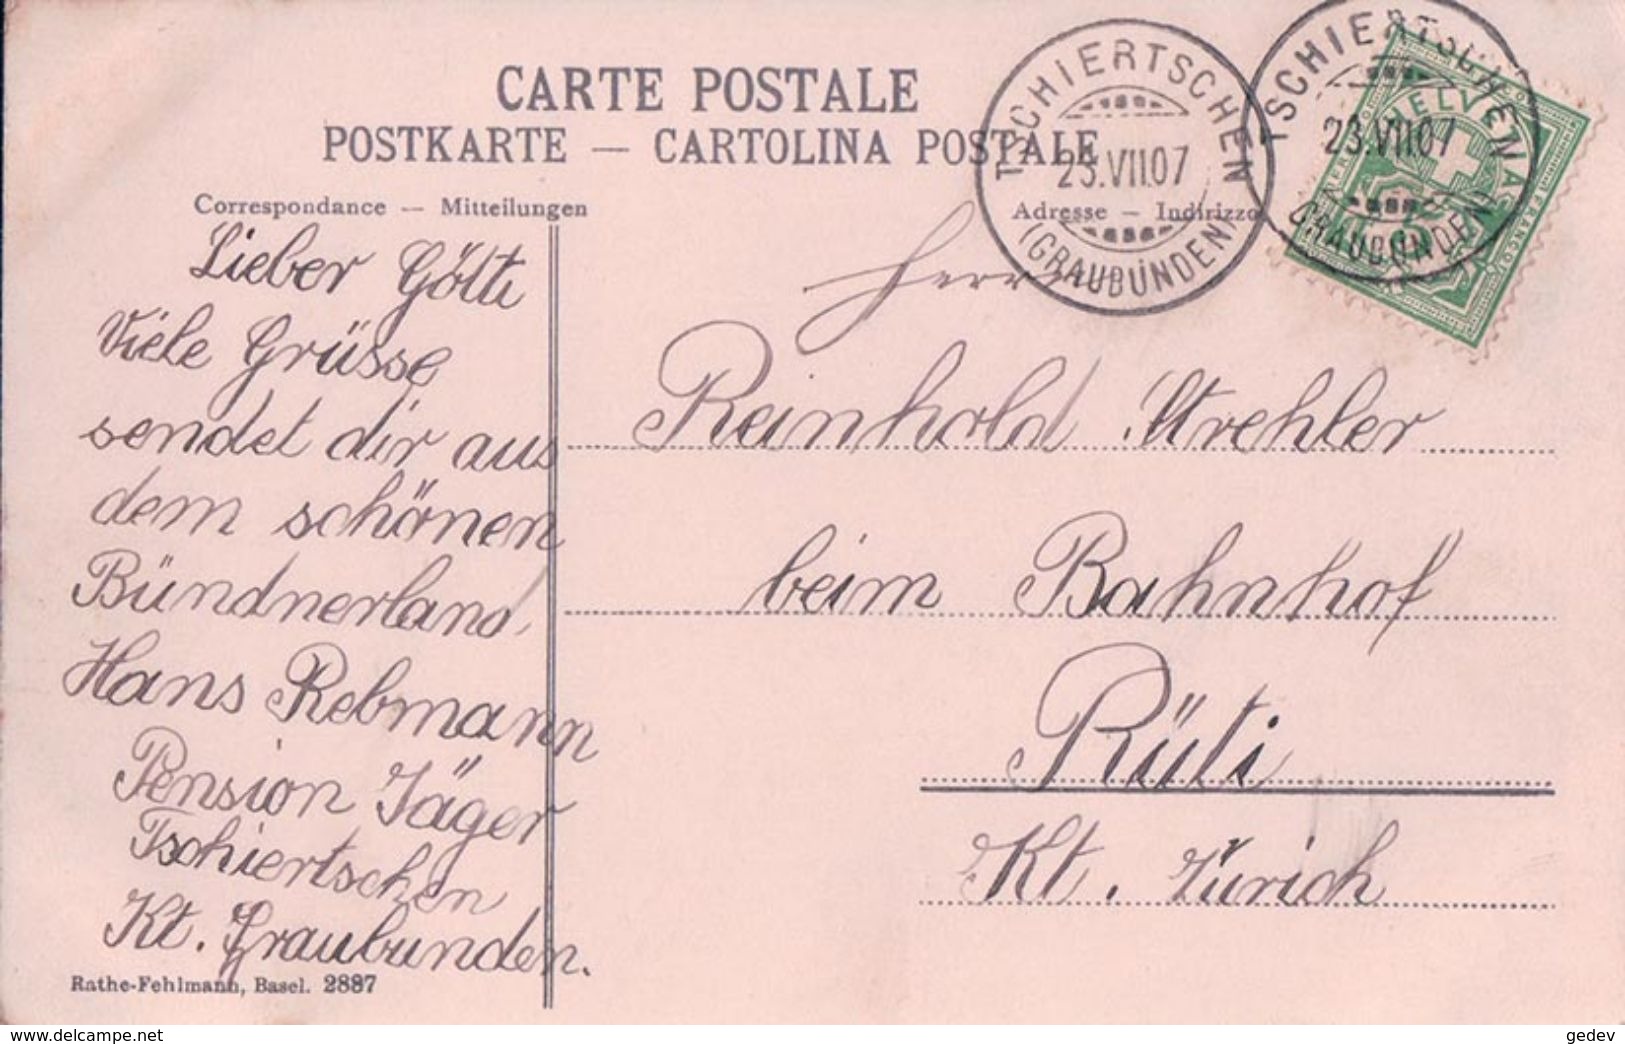 CARTE POSTALE
POSTKARTE — CARTOLINA POSTALE
Correspondance — Mitteilungen
Adresse — Indirizzo
TSCHIERTSCHEN
23.VII.07
(GRAUBÜNDEN)
TSCHIERTSCHEN
23.VII.07
(GRAUBÜNDEN)
HELVETIA
FRANCO
Lieber Götti
Viele Grüsse
sendet dir aus
dem schönen
Bündnerland,
Hans Rebmann
Pension Jäger
Tschiertschen
Kt. Graubünden.
Herrn
Reinhold Strehler
beim Bahnhof
Rüti
Kt. Zürich
Rathe-Fehlmann, Basel. 2887
www.delcampe.net
gedev